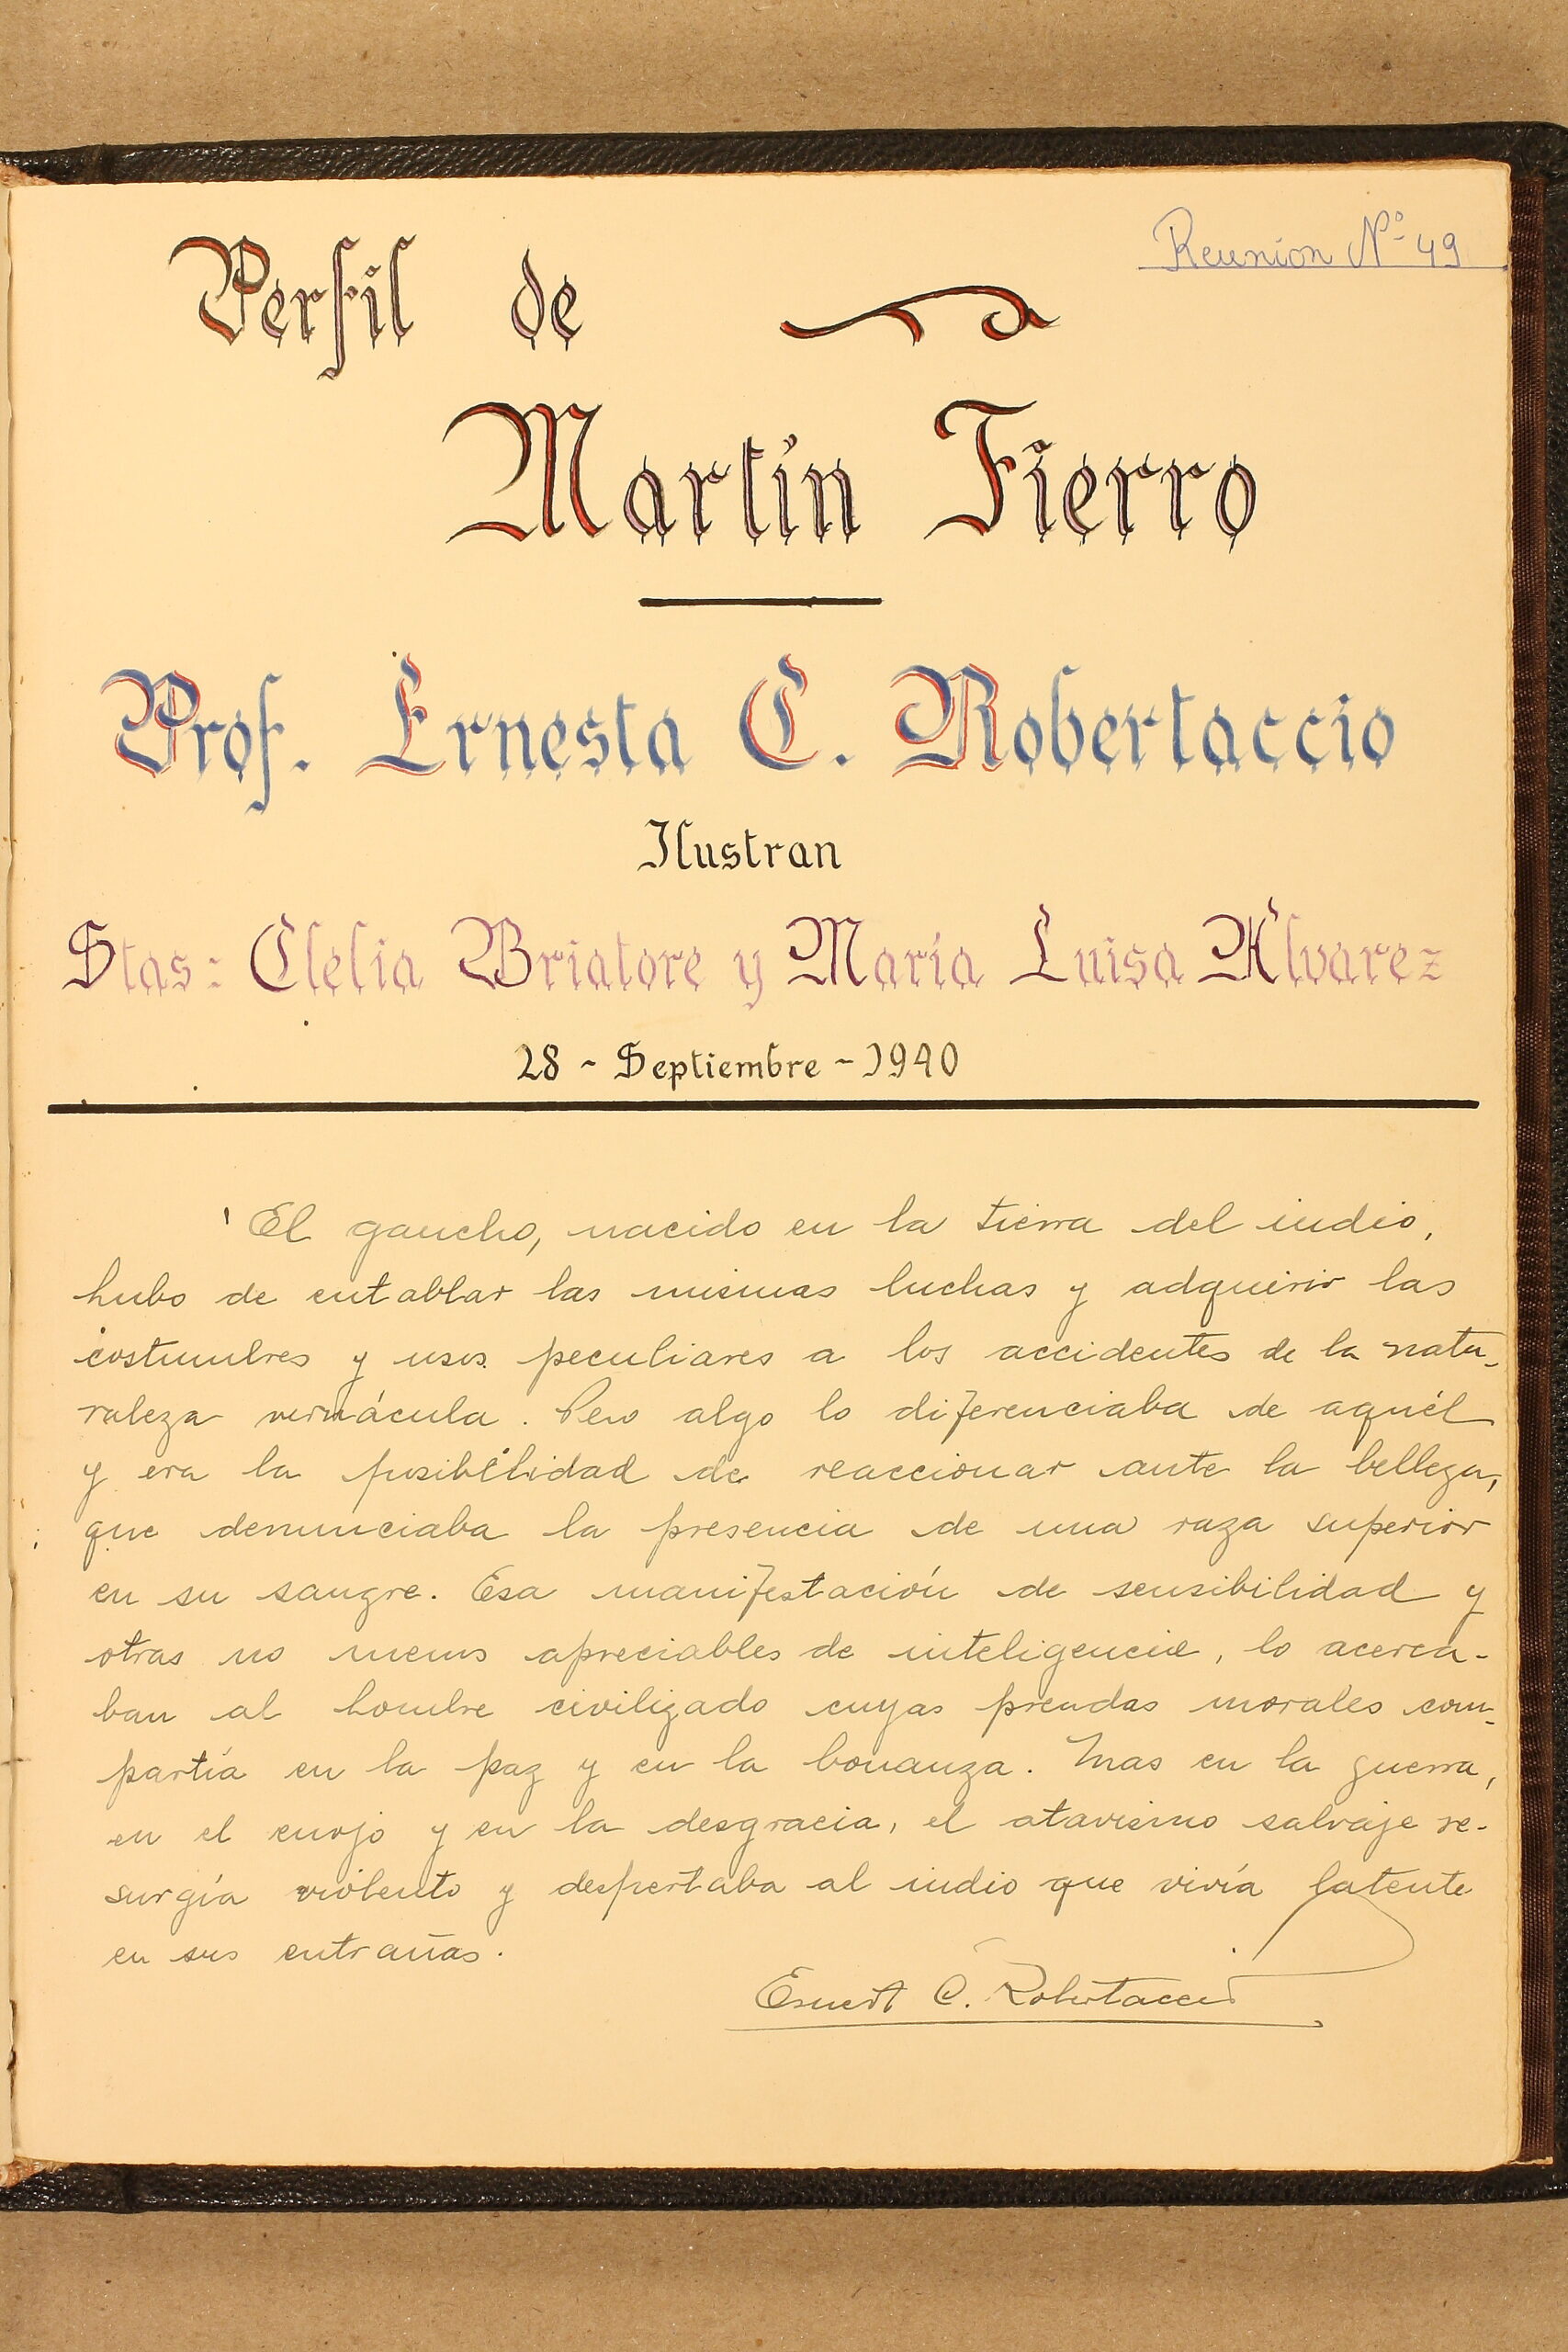 Reunion Nº 49
Perfil de
Martín Fierro
Prof. Ernesta C. Robertaccio
Ilustran
Stas: Clelia Briatore y María Luisa Álvarez
28 - Septiembre - 1940
' El gaucho, nacido en la tierra del indio,
hubo de entablar las mismas luchas y adquirir las
costumbres y usos peculiares a los accidentes de la natu-
raleza vernácula. Pero algo lo diferenciaba de aquél
y era la posibilidad de reaccionar ante la belleza,
que denunciaba la presencia de una raza superior
en su sangre. Esa manifestación de sensibilidad y
otras no menos apreciables de inteligencia, lo acerca-
ban al hombre civilizado cuyas prendas morales com-
partía en la paz y en la bonanza. Mas en la guerra,
en el enojo y en la desgracia, el atavismo salvaje re-
surgía violento y despertaba al indio que vivía latente
en sus entrañas.
Ernesta C. Robertaccio